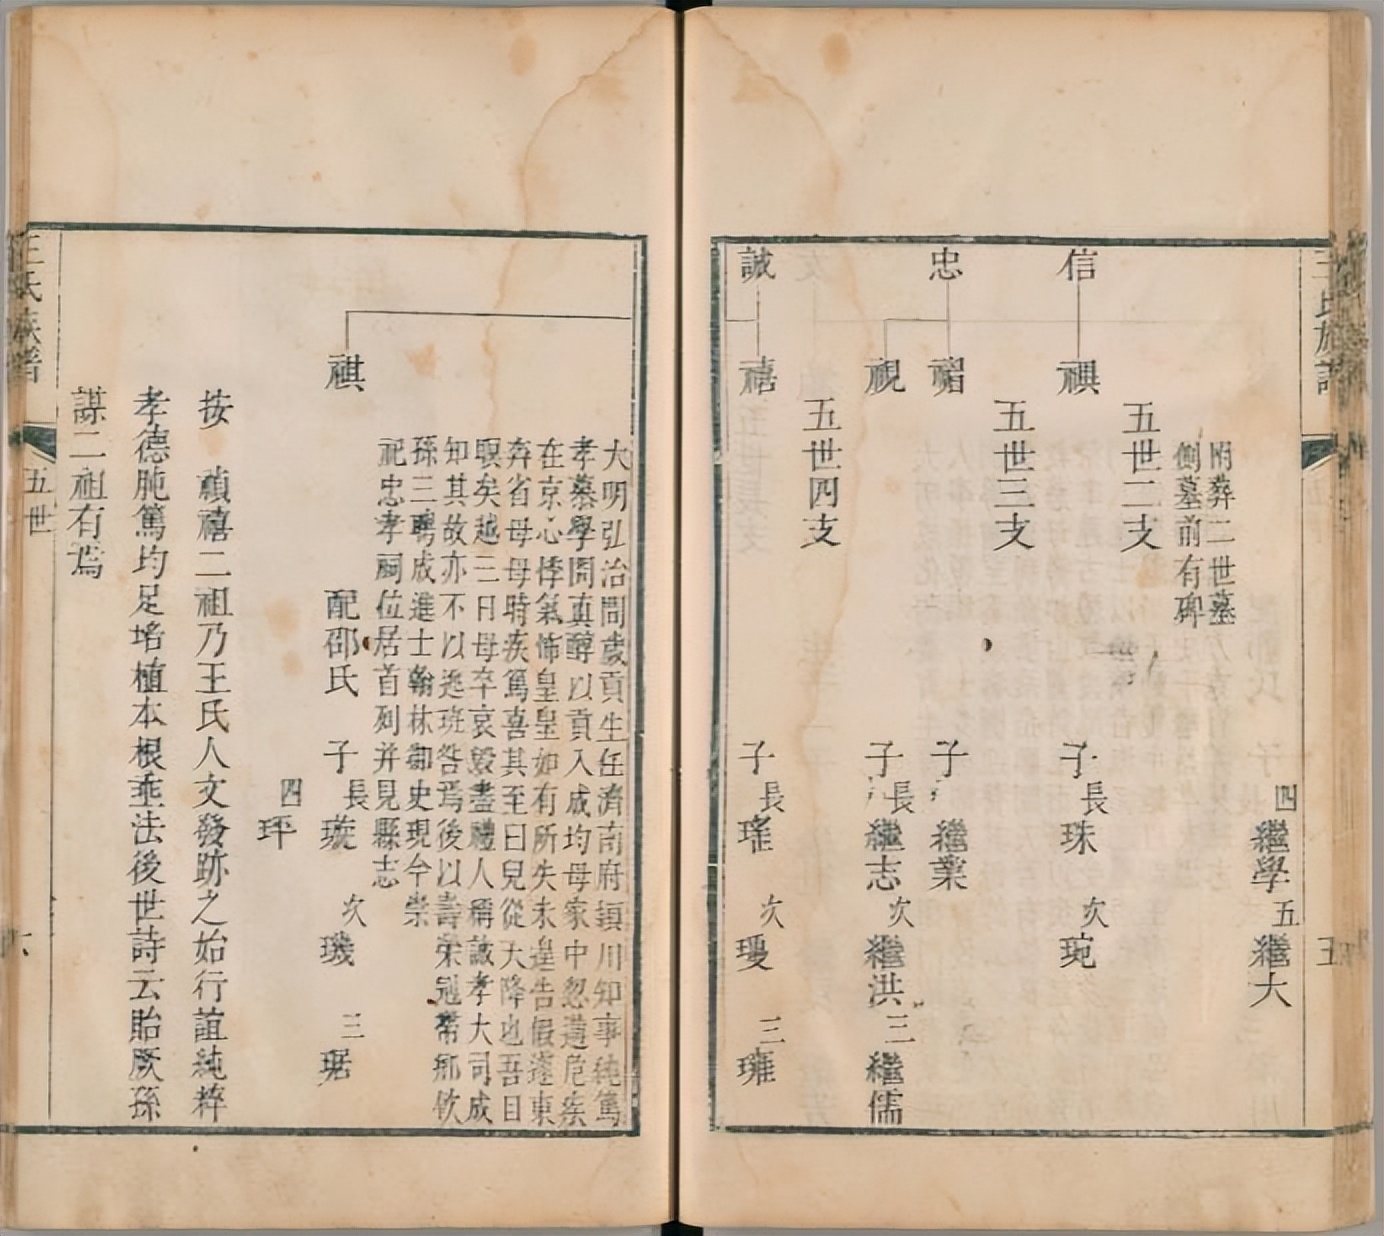 王氏族譜
五
四 繼學 五 繼大
附葬二世墓
側墓前有碑
五世二支
信 禩 子 長 珠 次 琬
五世三支
忠 禵 子 繼業
祝 子 長 繼志 次 繼洪 三 繼儒
五世四支
誠 禧 子 長 琟 次 瓊 三 㻽
大明弘治間歲貢生任濟南府穎川知事純篤
孝慕學問真醇以貢入成均母家中忽遘危疾
在京心悸氣怖皇皇如有所失未遑告假遂東
奔省母母時疾篤喜其至曰兒從天降也吾目
瞑矣越三日母卒哀毀盡禮人稱誠孝大司成
知其故亦不以逃班咎焉後以壽榮冠帶鄉飲
孫三聘成進士翰林御史現今崇
祀忠孝祠位居首列并見縣志
祺 配邵氏 子 長 璇 次 璣 三 琚
四 玶
按 禎禧二祖乃王氏人文發跡之始行誼純粹
孝德肫篤均足培植本根垂法後世詩云貽厥孫
謀二祖有焉
王氏族譜 五世 六